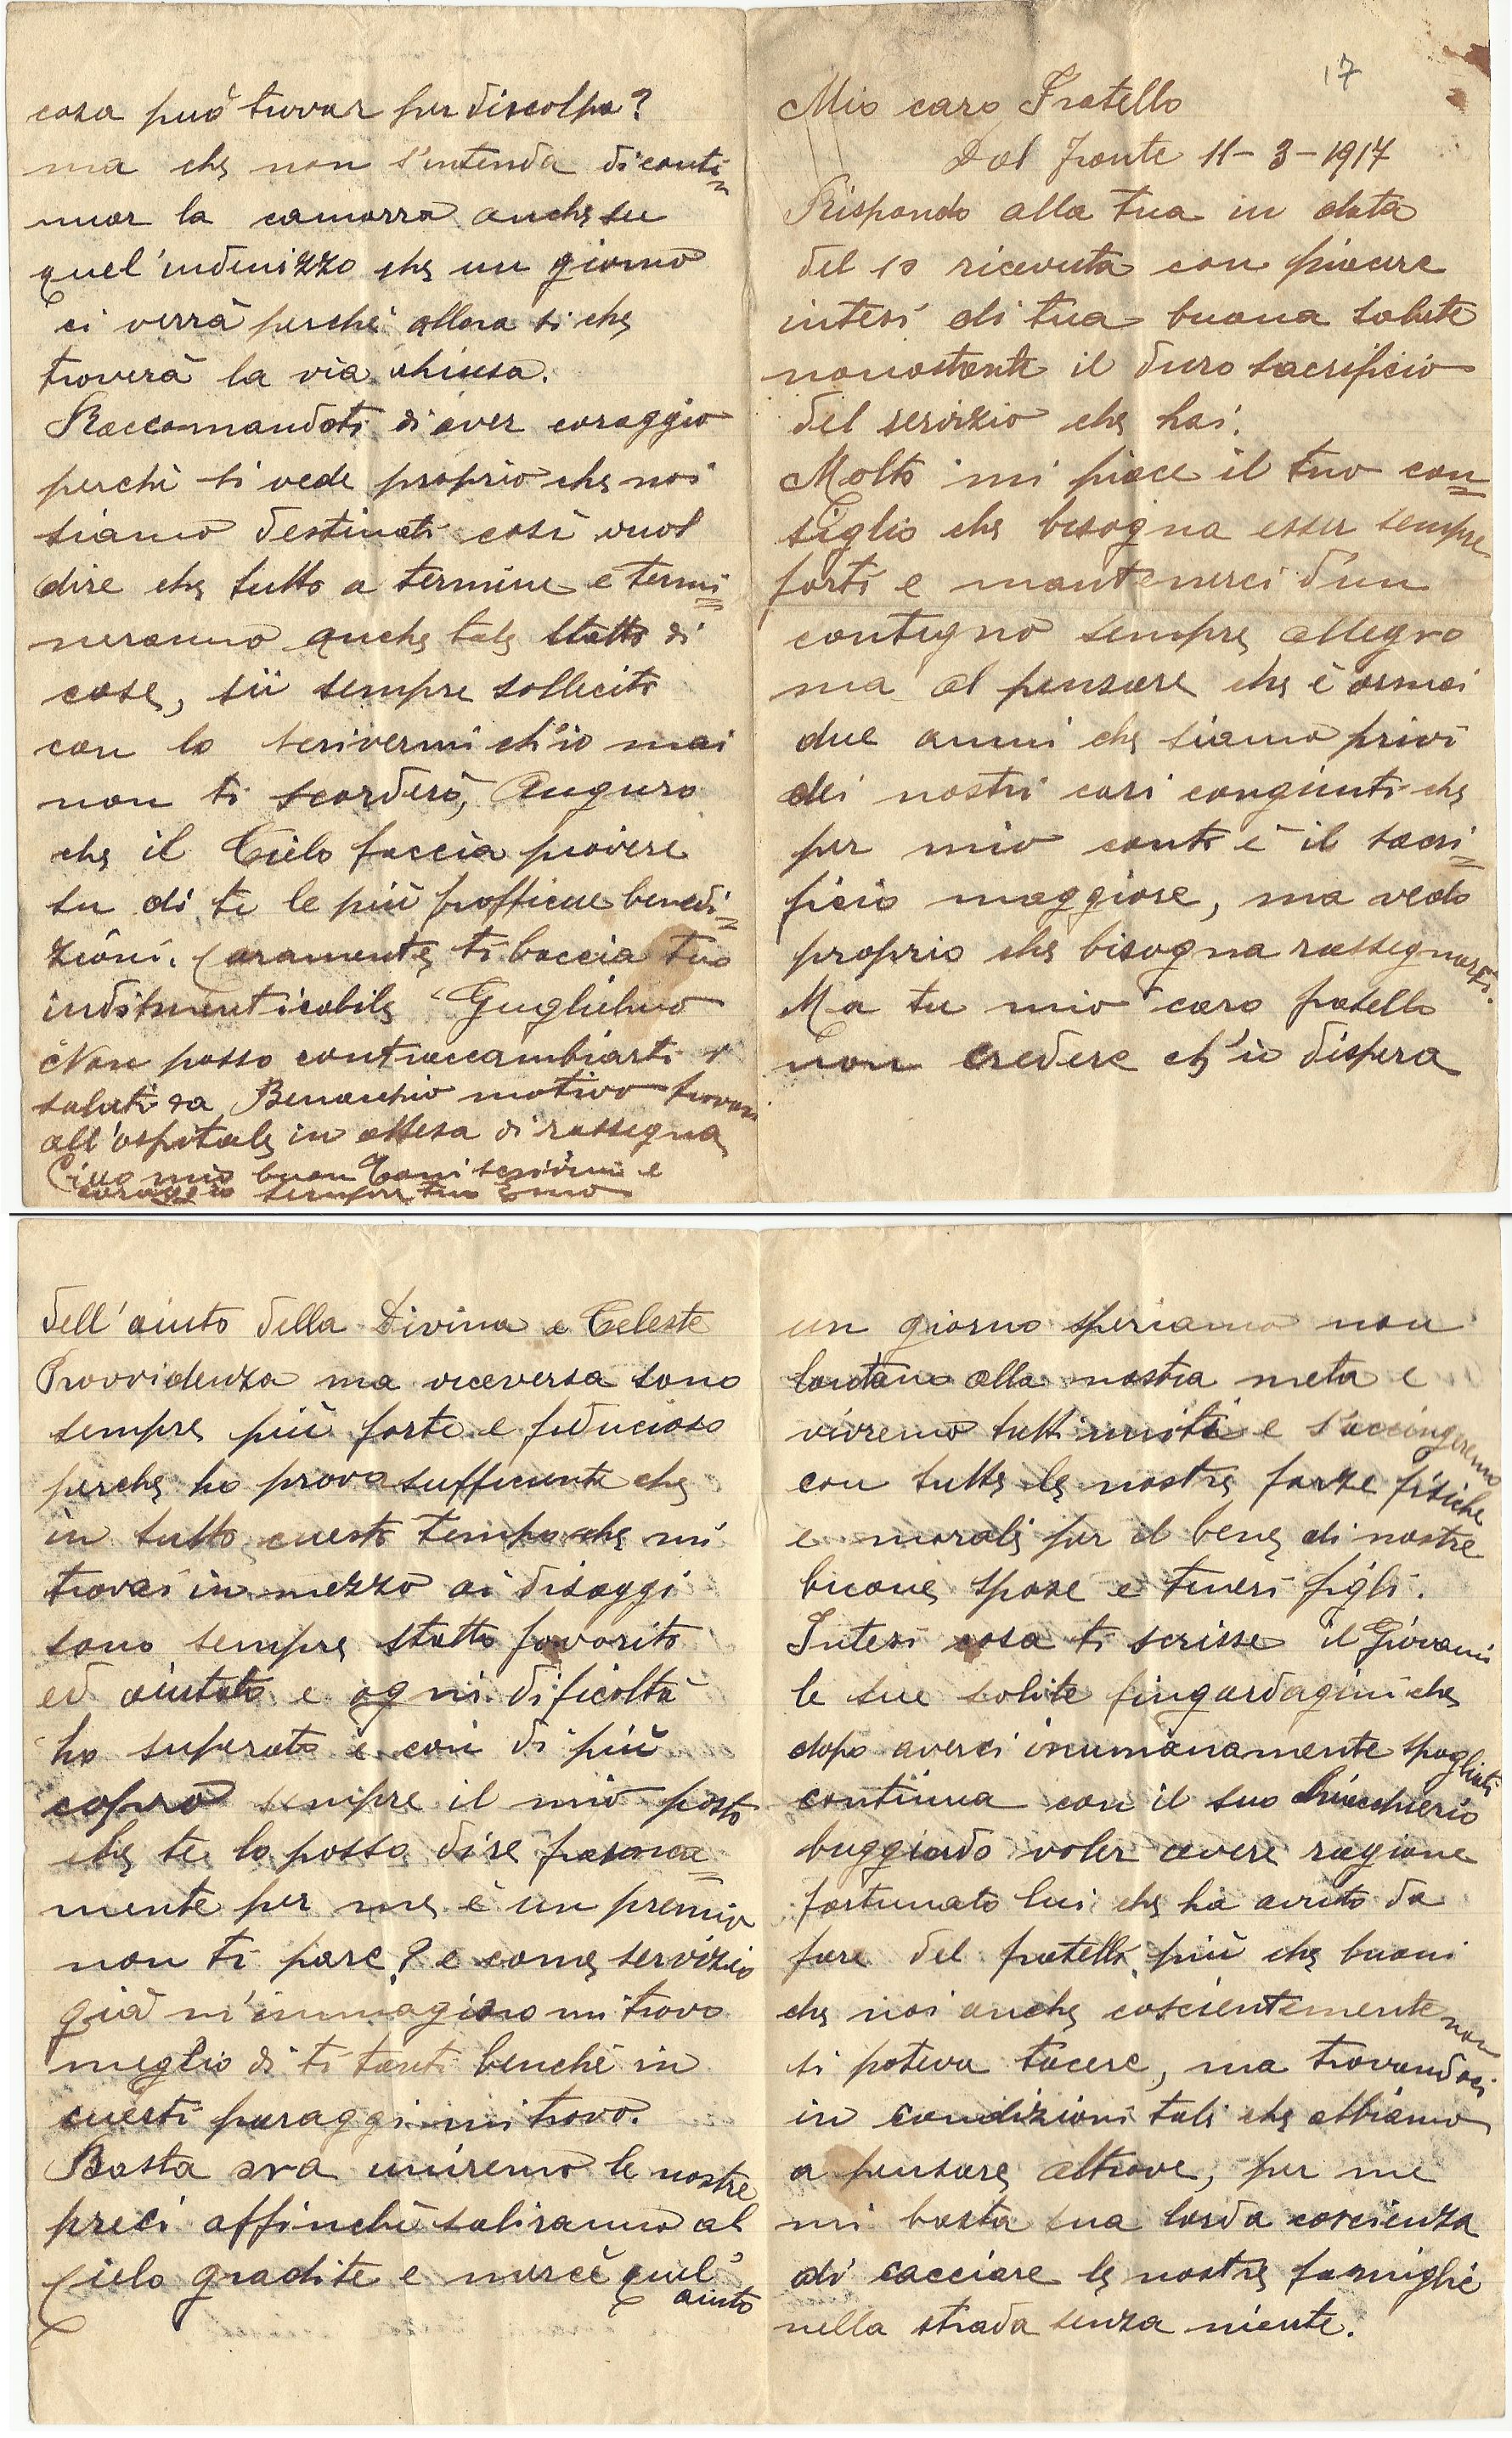 17
Mio caro Fratello
Dal fronte 11-3-1917
Rispondo alla tua in data
del 10 ricevuta con piacere
intesi di tua buona salute
nonostante il duro sacrificio
del servizio che hai.
Molto mi piace il tuo con=
siglio che bisogna esser sempre
forti e mantenerci d'un
contegno sempre allegro
ma al pensare che è ormai
due anni che siamo privi
dei nostri cari congiunti che
per mio conto è il sacri=
ficio maggiore, ma vedo
proprio che bisogna rassegnarsi.
Ma tu mio caro fratello
non credere ch'io dispera
dell'aiuto della Divina e Celeste
Provvidenza ma viceversa sono
sempre più forte e fiducioso
perche ho prova sufficente che
in tutto cuesto tempo che mi
trovai in mezzo ai disaggi
sono sempre statto favorito
ed aiutato e ogni dificoltà
ho superato e con di più
copro sempre il mio posto
che te lo posso dire
mente per me è un premio
non ti pare? e come servizio
già m'immagino mi trovo
meglio di ti tanti benchè in
cuesti paraggi mi trovo.
Basta ora uniremo le nostre
preci affinchè saliranno al
Cielo gradite e mercè quel'
aiuto
un giorno speriamo non
lontano alla nostra meta e
vivremo tutti uniti e s'accingeremo
con tutte le nostre forze fisiche
e morali per il bene di nostre
buone spose e teneri figli.
Intesi cosa ti scrisse il Giovani
le sue solite fingardagini che
dopo averci inumanamente spogliati
continua con il suo
buggiardo voler avere ragione
fortunato lui che ha avuto da
fare del fratelli più che buoni
che noi anche coscientemente non
si poteva tacere, ma trovandoci
in condizioni tali che abbiamo
a pensare altrove, per me
mi basta sua lorda coscienza
di cacciare le nostre famiglie
nella strada senza niente.
cosa può trovar per discolpa?
ma che non s'intenda di conti=
nuar la camorra anche su
quel'indenizzo che un giorno
ci verrà perchè allora si che
troverà la via chiusa.
Raccomandoti di aver coraggio
perchè si vede proprio che noi
siamo destinati così vuol
dire che tutto a termine e termi=
neranno anche tale statto di
cose, sii sempre sollecito
con lo scrivermi ch'io mai
non ti scorderò, Auguro
che il Cielo faccia piovere
su di te le più profficue benedi=
zioni. Caramente ti baccia tuo
indimenticabile Guglielmo
Non posso contraccambiarti i
saluti da Benacchio motivo trovasi
all'ospitale in attesa di rassegna
Ciao mio buon Toni scrivimi e
coraggio sempre tuo Emo